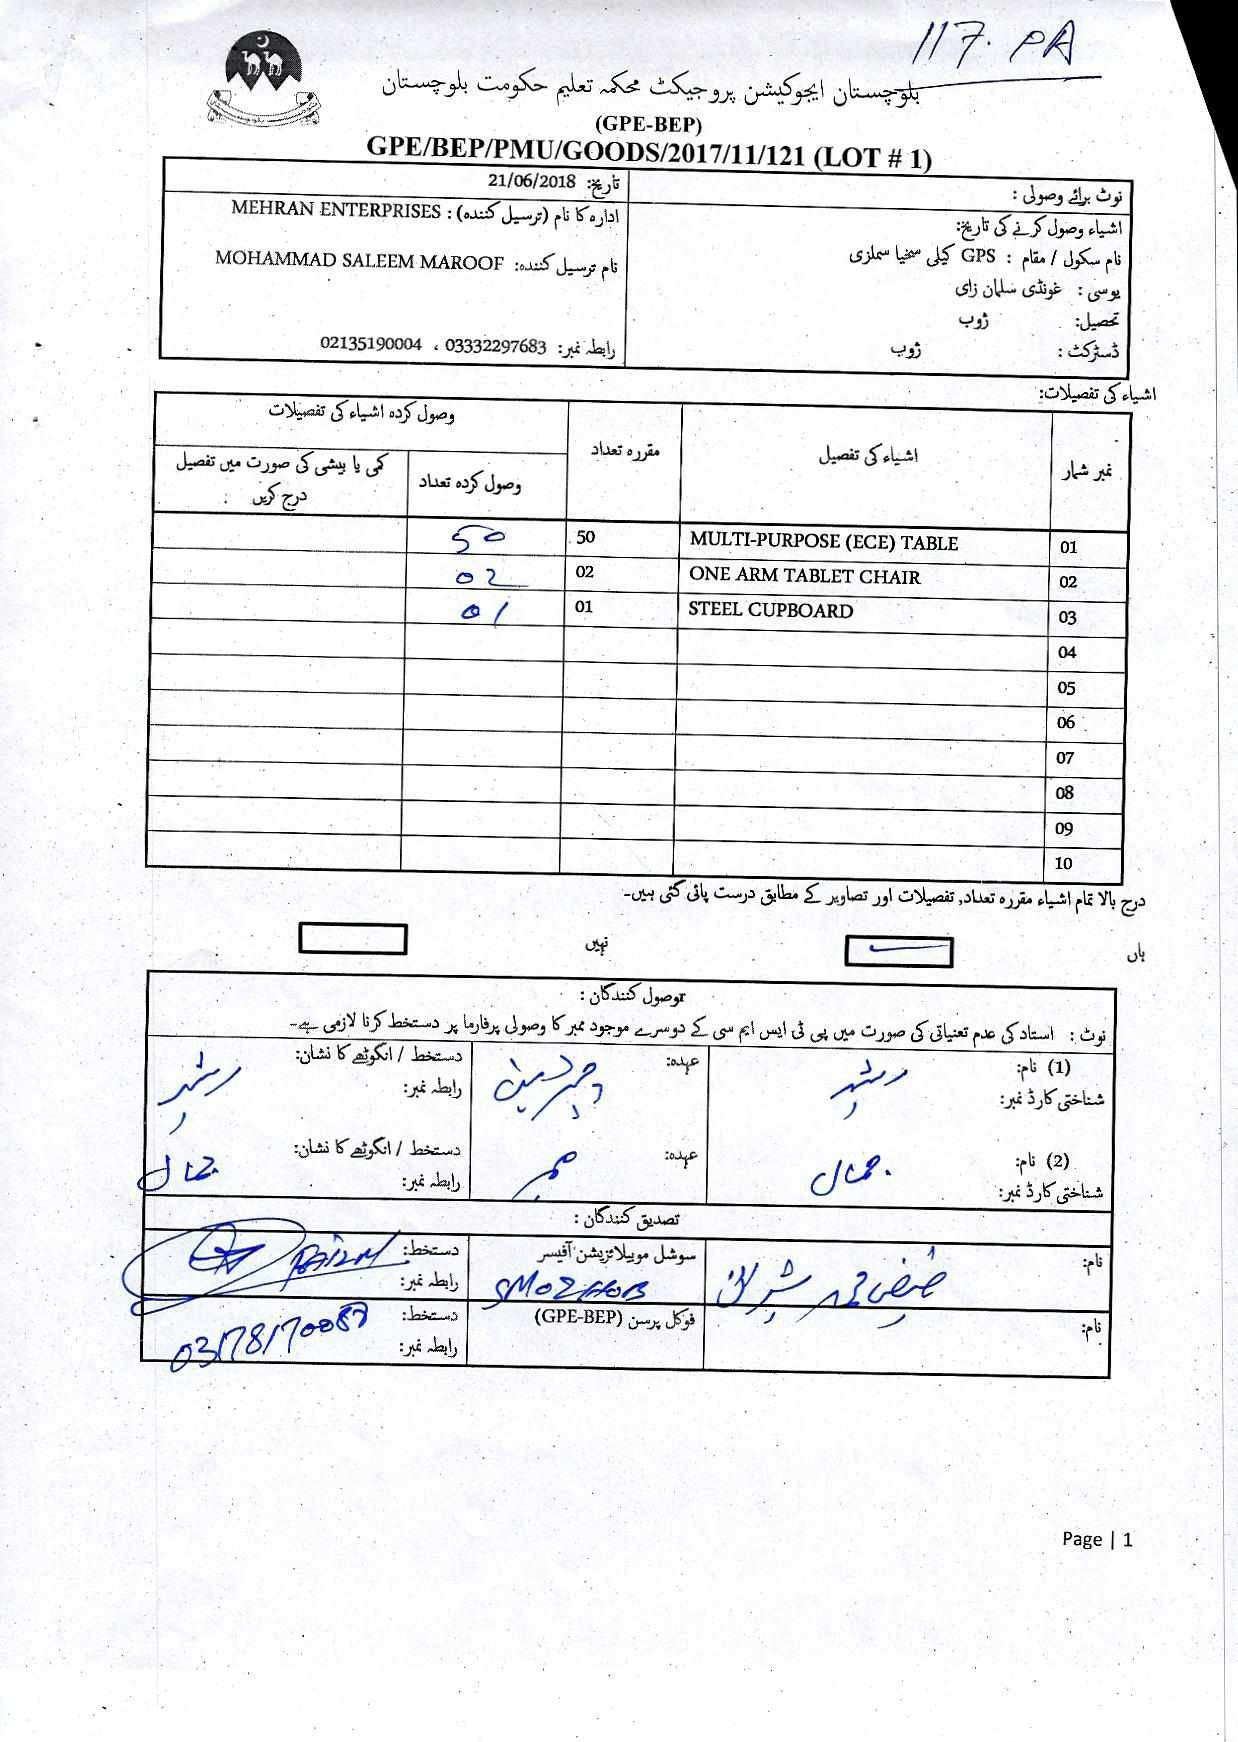 117. PA
بلوچستان ایجوکیشن پروجیکٹ محکمہ تعلیم حکومت بلوچستان
(GPE-BEP)
GPE/BEP/PMU/GOODS/2017/11/121 (LOT # 1)
نوٹ برائے وصولی :
تاریخ: 21/06/2018
اشیاء وصول کرنے کی تاریخ:
ادارہ کا نام (ترسیل کنندہ) : MEHRAN ENTERPRISES
نام سکول / مقام : GPS کیلی سخیا سملزی
نام ترسیل کنندہ: MOHAMMAD SALEEM MAROOF
یوسی : غونڈی سلمان زای
تحصیل: ژوب
ڈسٹرکٹ : ژوب
رابطہ نمبر: 03332297683 ، 02135190004
اشیاء کی تفصیلات:
نمبر شمار
اشیاء کی تفصیل
مقررہ تعداد
وصول کردہ اشیاء کی تفصیلات
وصول کردہ تعداد
کمی یا بیشی کی صورت میں تفصیل درج کریں
01 MULTI-PURPOSE (ECE) TABLE 50 50
02 ONE ARM TABLET CHAIR 02 02
03 STEEL CUPBOARD 01 01
04
05
06
07
08
09
10
درج بالا تمام اشیاء مقررہ تعداد, تفصیلات اور تصاویر کے مطابق درست پائی گئی ہیں۔
ہاں
نہیں
وصول کنندگان :
نوٹ : استاد کی عدم تعنیاتی کی صورت میں پی ٹی ایس ایم سی کے دوسرے موجود ممبر کا وصولی پرفارما پر دستخط کرنا لازمی ہے۔
(1) نام: رشید
عہدہ: چیرمین
دستخط / انگوٹھے کا نشان: رشید
شناختی کارڈ نمبر:
رابطہ نمبر:
(2) نام: جمال
عہدہ: ممبر
دستخط / انگوٹھے کا نشان: جمال
شناختی کارڈ نمبر:
رابطہ نمبر:
تصدیق کنندگان :
نام: فیض محمد شیرانی
سوشل موبیلائزیشن آفیسر
SMO ZHOB
دستخط:
رابطہ نمبر:
نام:
فوکل پرسن (GPE-BEP)
دستخط:
رابطہ نمبر:
03178170087
Page | 1